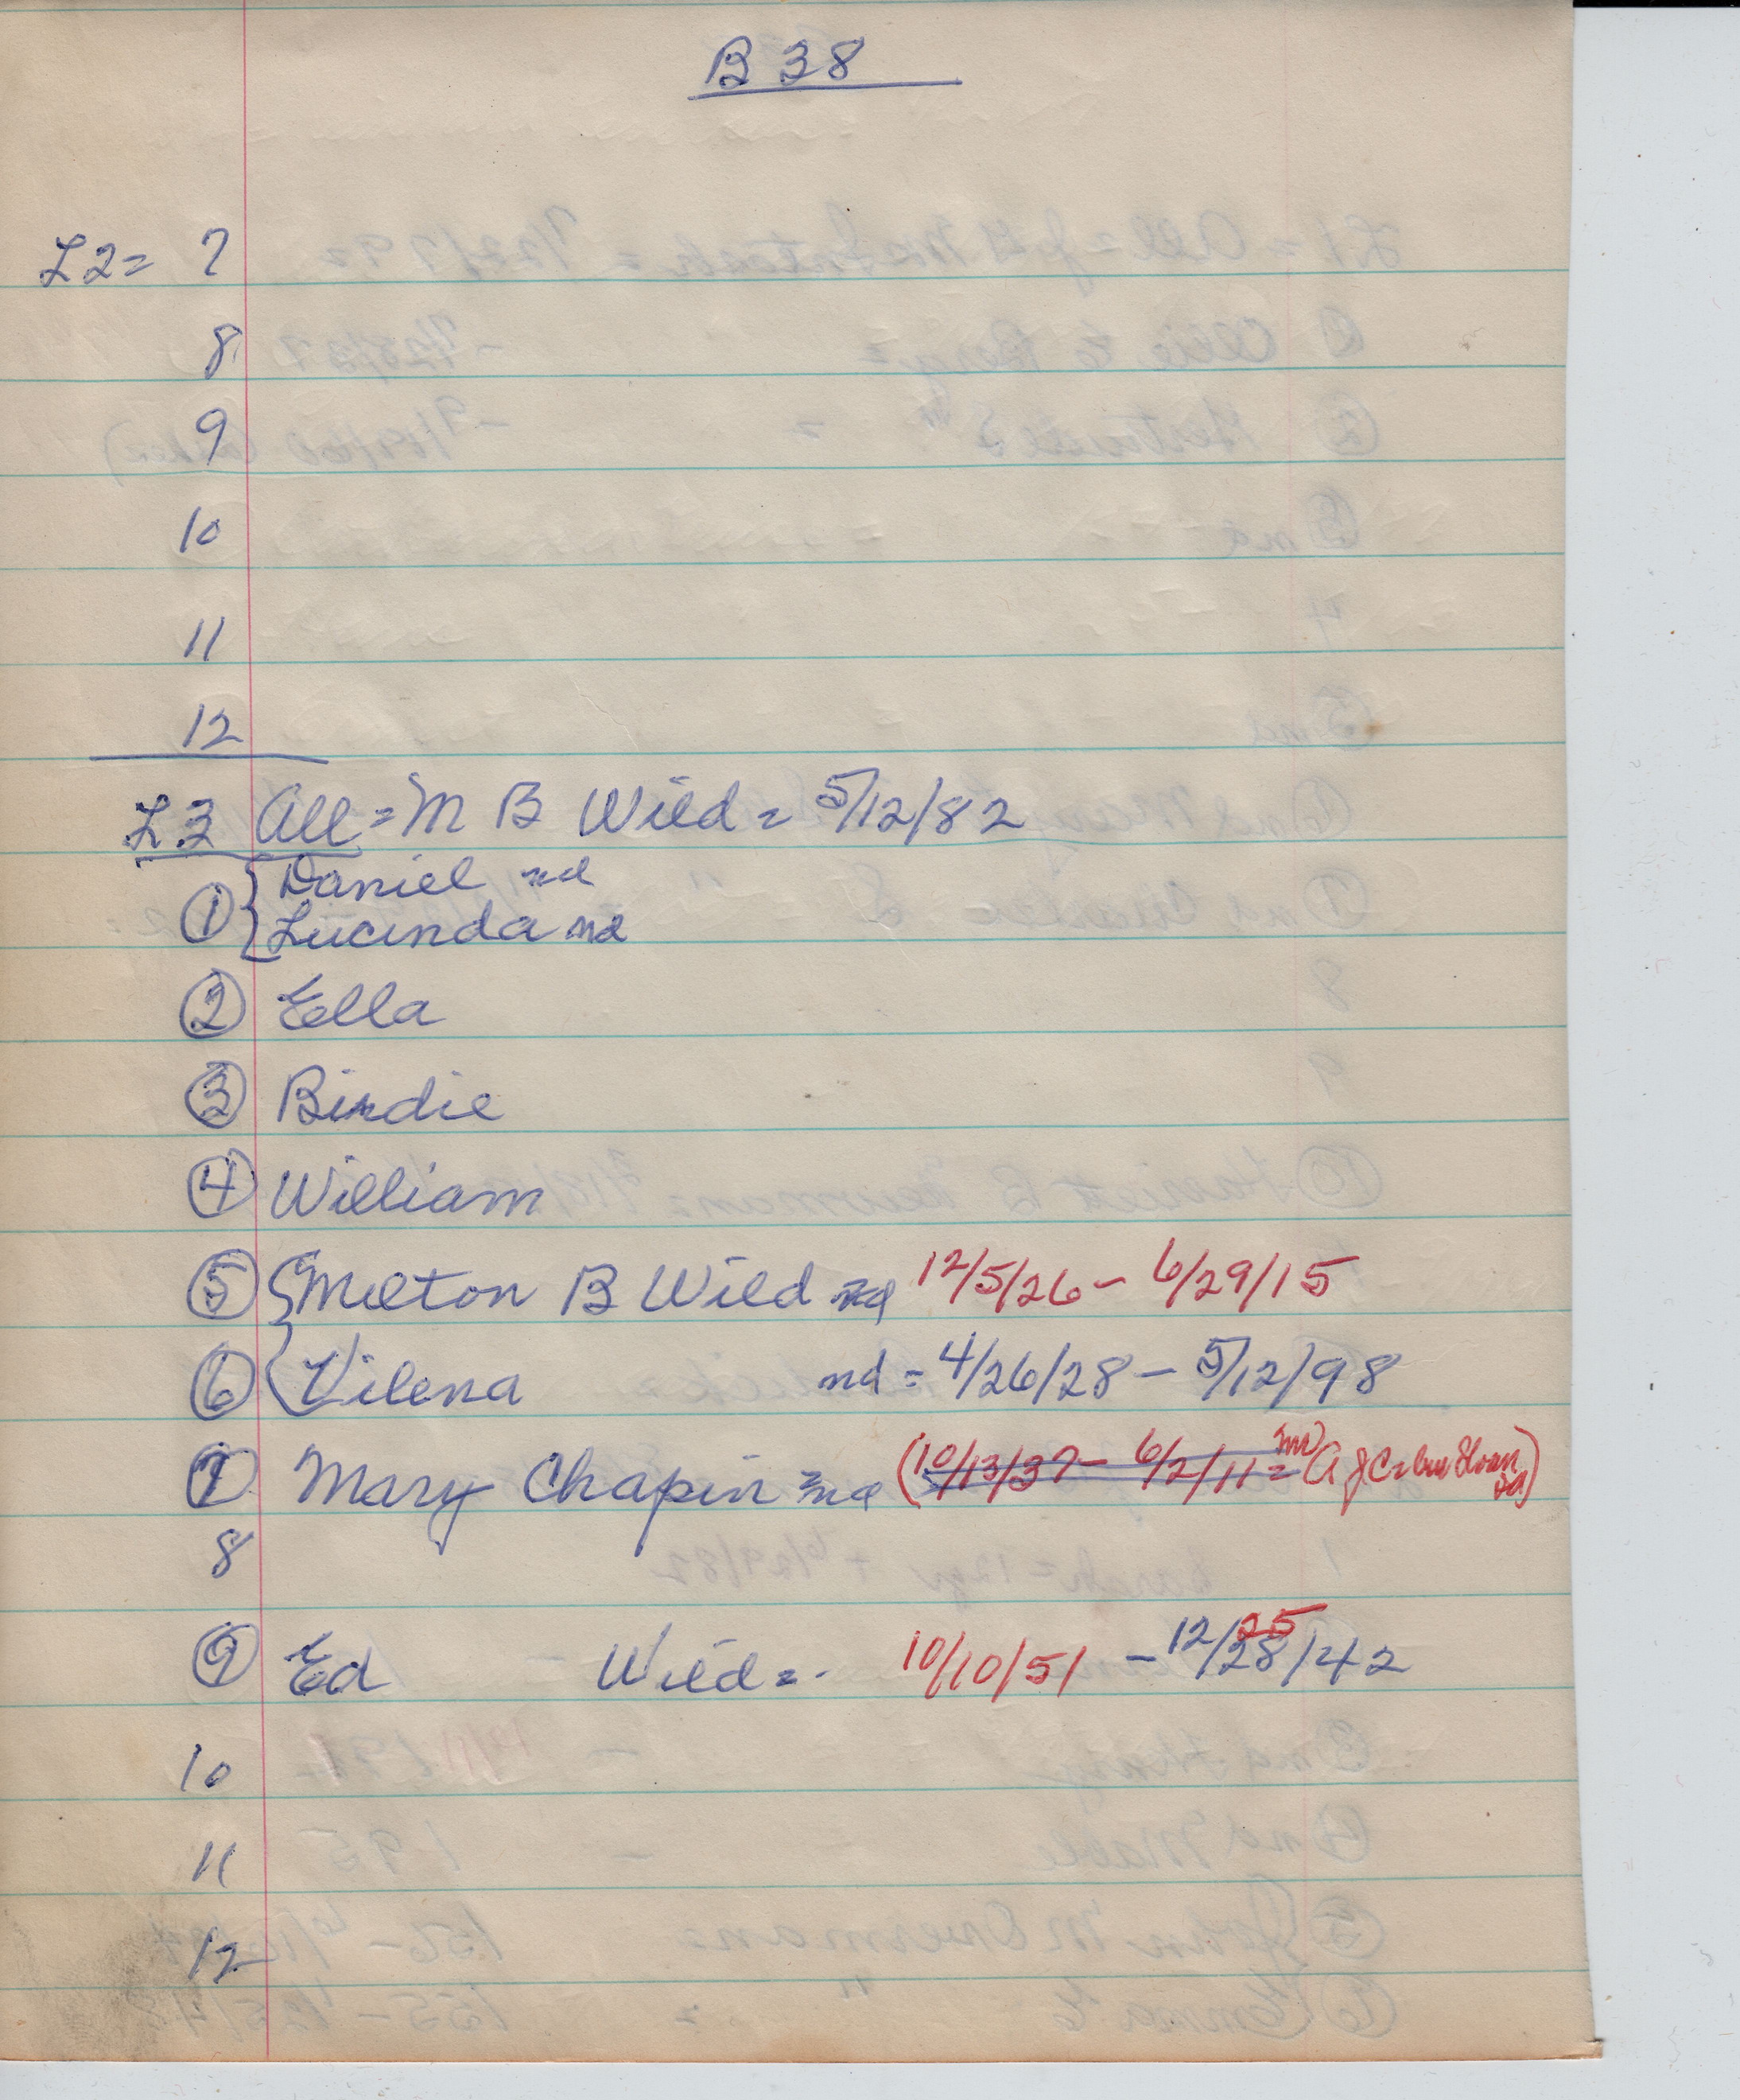 B 38
L2 = 7
8
9
10
11
12
L3 All = M B Wild = 5/12/82
1 Daniel nd
Lucinda nd
2 Ella
3 Birdie
4 William
5 Milton B Wild nd 12/5/26 - 6/29/15
6 Vilena nd = 4/26/28 - 5/12/98
7 Mary Chapin = nd (10/13/37 - 6/2/11 = A J C =
8
9 Ed Wild = 10/10/51 - 12/28/42
25
10
11
12